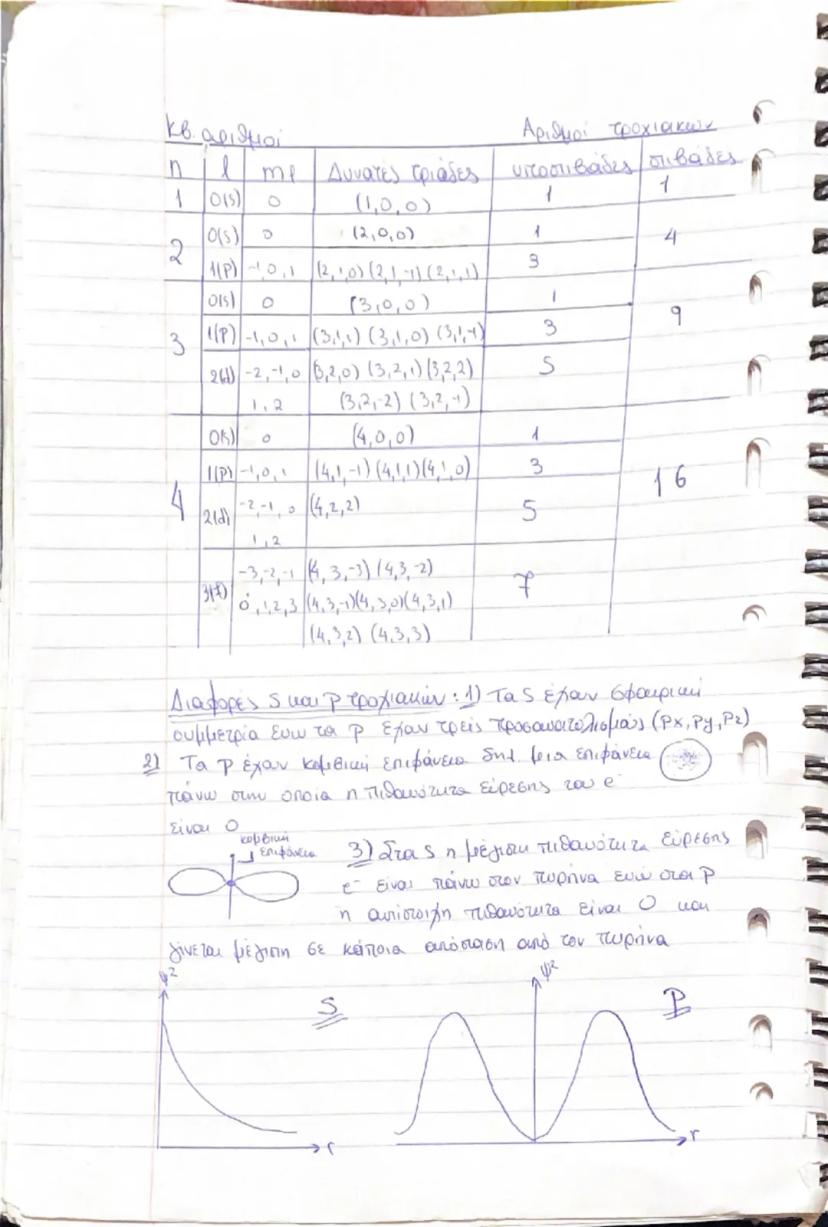 κβ. αριθμοί Αριθμοί τροχιακών
n l ml Δυνατές τριάδες υποστιβάδες στιβάδες
1 0(s) 0 (1,0,0) 1 1
2 0(s) 0 (2,0,0) 1 4
1(p) -1,0,1 (2,1,0) (2,1,-1) (2,1,1) 3
3 0(s) 0 (3,0,0) 1 9
1(p) -1,0,1 (3,1,1) (3,1,0) (3,1,-1) 3
2(d) -2,-1,0 (3,2,0) (3,2,1) (3,2,2) 5
1,2 (3,2,-2) (3,2,-1)
4 0(s) 0 (4,0,0) 1 16
1(p) -1,0,1 (4,1,-1) (4,1,1) (4,1,0) 3
2(d) -2,-1,0 (4,2,2) 5
1,2
3(f) -3,-2,-1 (4,3,-3) (4,3,-2) 7
0,1,2,3 (4,3,-1) (4,3,0) (4,3,1)
(4,3,2) (4,3,3)
Διαφορές s και p τροχιακών: 1) Τα s έχουν σφαιρική
συμμετρία ενώ τα p έχουν τρείς προσανατολισμούς (px, py, pz)
2) Τα p έχουν κομβική επιφάνεια δηλ. μια επιφάνεια
πάνω στην οποία η πιθανότητα εύρεσης του e-
είναι 0
κομβική
επιφάνεια
3) Στα s η μέγιστη πιθανότητα εύρεσης
e- είναι πάνω στον πυρήνα ενώ στα p
η αντίστοιχη πιθανότητα είναι 0 και
γίνεται μέγιστη σε κάποια απόσταση από τον πυρήνα
ψ² s r
ψ² p r